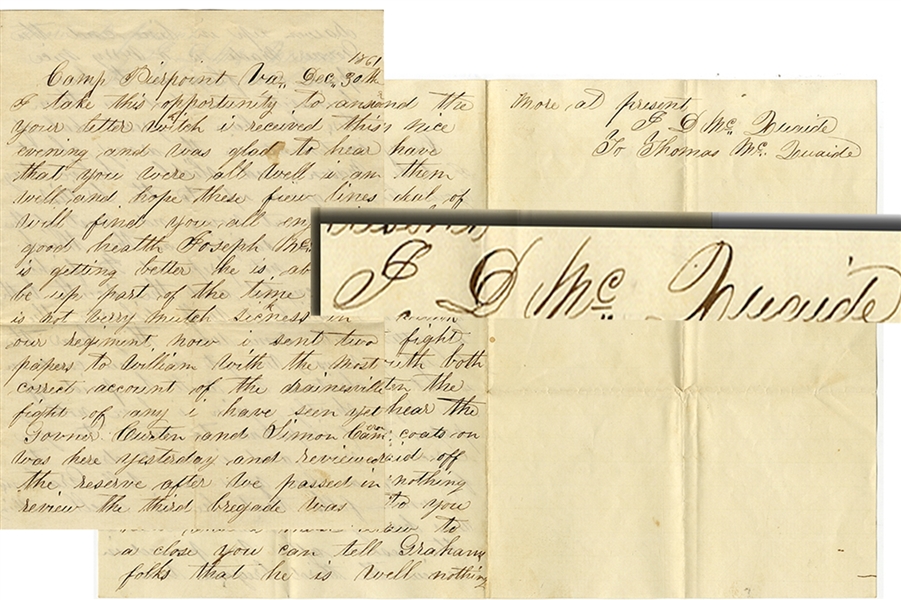 1861
Camp Pierpoint Va,, Dec,, 30th
I take this opportunity to answ
your letter witch i received this
evening and was glad to hear
that you were all well i am
well and hope these fiew lines
will find you all en
good health Joseph Mc
is getting better he is ab
be up part of the time
is not verry mutch sickness in
our regiment now i sent two
papers to William with the most
correct account of the drainesvill
fight of any i have seen yet
Govner Curten and Simon Cam
was here yesterday and reviewed
the reserve after we passed in
review the third bregade was
and the
nice
have
them
deal of
fight
with both
in the
hear the
coats on
said off
nothing
to you
to
a close you can tell Grahams
folks that he is well nothing
more at present
J D Mc,, Quaide
To Thomas Mc,, Quaide
J D Mc,, Quaide